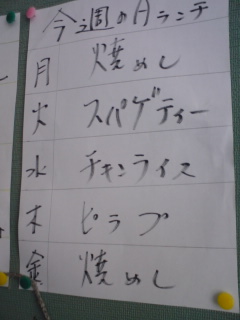 今週のAランチ
月 焼めし
火 スパゲティー
水 チキンライス
木 ピラフ
金 焼めし